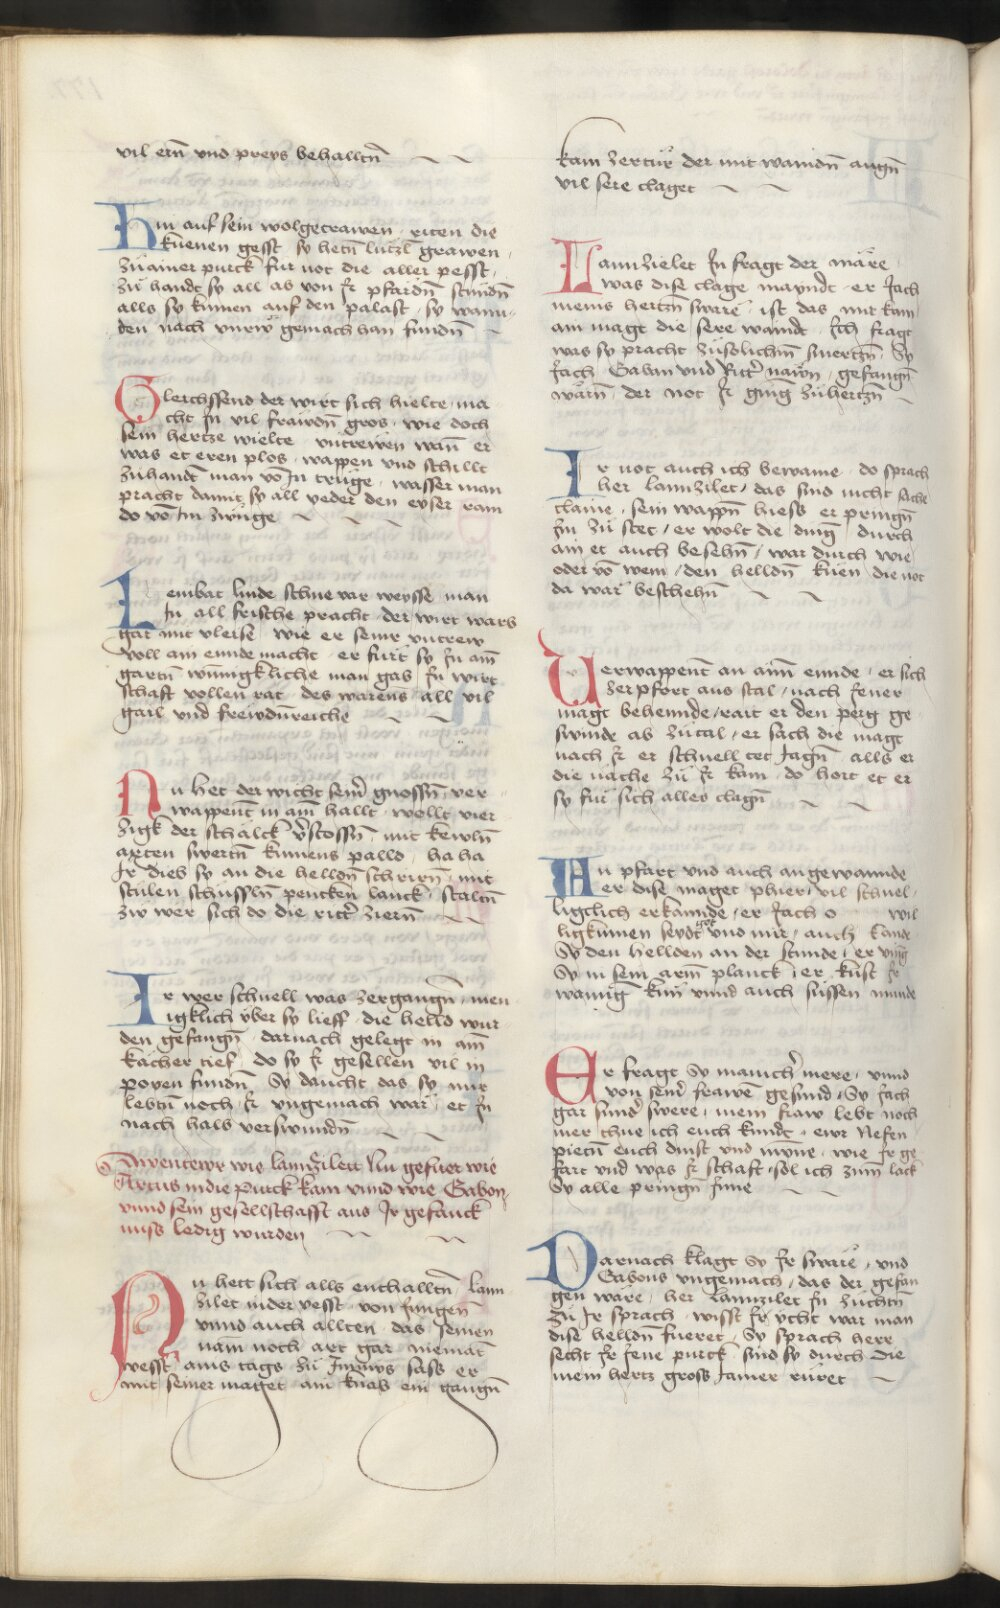 vil ern̄ vnd preys behalltn̄
Hin auf sein wolgetrawen · riten die
kuenen gesst · sy hetn̄ lutzl grawen ·
zu ainer purck fur not die aller pesst ·
zu handt sy all ab von jr pfardn̄ stundn̄
alls sy kumen auf den palast · sy wann
den nach vnrw gemach han fundn̄
Gleichssend der wirt sich hielte · ma
cht jn vil frawdn̄ gros · wie doch
sein hertze wielte · vntrewen wan̄ er
was et eren plos · wappen vnd schillt
zuhandt man vō jn truge · wasser man
pracht damit sy all yeder den eyser ram
do vō jm zwuge
Leinbat linde schne var weysse · man
jn all frische pracht · der wirt wars
gar mit vleise · wie er seinr vntrew
voll am ennde macht · er furt sy jn am̄
gartn̄ wunigkliche man gab jn wirt
schaft vollen rat · des warens all vil
gail vnd frewdn̄reiche
Nu het der wicht sein̄ gnossn̄ ver
wappent in am̄ hallt · wollt vier
zigk der schalck v̄stossn̄ · mit kewln̄
axten swertn̄ kumens palld · ha ha
jr dieb sy an die helldn̄ schrirn̄ · mit
stulen schussln̄ pencken lanck · stalltn̄
zu wer sich do die ritt̄ ziern̄
Ir wer schnell was zergangn̄ · men
igklich vber sy lieff · die helld wur
den gefangn̄ · darnach gelegt in am̄
kacher tief · do sy jr gesellen vil in
poyen fundn̄ Sy daucht das sy nur
lebtn̄ noch · jr vngemach war · et jn
nach halb verswundn̄
Awentewr wie lannzilett hin gefuert wie
Artus in die Purck kam vnnd wie Gabon
vnnd sein gesellschafft aus Jr gefanck
nuss ledig wurden
Nu hett sich alls enthalltn̄ lann
zilet in der vesst · von jungen
vnnd auch allten · das seinen
nam noch art gar niemant
wesst ains tags zu ymbis sass er
mit seiner maget ain knab ein gangn̄
kam zertur der mit wainden augn̄
vil sere claget
Lannzielet jn fragt der märe
was dise clage maynd̄t · er jach
meins hertzn̄ sware · ist das mit kam
am magt die sere waindt · Ich fragt
was sy pracht zusolichn̄ smertzn̄ Sy
jach · Gaban vnd Ritt̄ nawn · gefangn̄
warn̄ · der not jr ging zuhertzn̄
Ir not auch ich bewaine · do sprach
her lannzilet / das sind nicht sache
claine · sein wappn̄ hiess er pringn̄
jm zu stet / er wolt die ding durch
ain et auch besehn̄ / war durch wie
oder vō wem / den helldn̄ kuen die not
da war beschehn̄
Verwappent an aim̄ ennde · er sich
zer pfort aus stal / nach jener
magt behennde / rait er den perg ge
swinde ab zutal · er sach die magt
nach jr er schnell tet jagn̄ alls er
die nache zu jr kam · do hort et er
sy fur sich alles clagn̄
An pfart vnd auch an gewannde
er dise maget phier / vil schnel
ligklich erkannde / er jach o wil
ligkumen seydt got vnd mir / auch kande
Sy den hellden an der stunde / er ving
Sy in sein arm̄ planck / er kust jr
wanng kin vnnd auch sussen munde
Er fragt Sy manich̄ mere · vnnd
von sein̄ frawē gesund / Sy jach
gar sund̄ swere · mein fraw lebt noch
mer thue ich euch kundt · ewr Nefen
pietn̄ euch dinst vnd mynne · wie jr ge
fart vnd was jr schaft · sol ich zum lack
Sy alle pringn̄ jnne
Darnach klagt Sy jr sware · vnd
Gabons vngemach / das der gefan
gen ware · her lannzilet jn zuchtn̄
zu jr sprach · wisst jr ycht war man
dise helldn̄ fueret / Sy sprach herr
secht jr jene purck · sind sy durch die
mein hertz gross jamer ruret